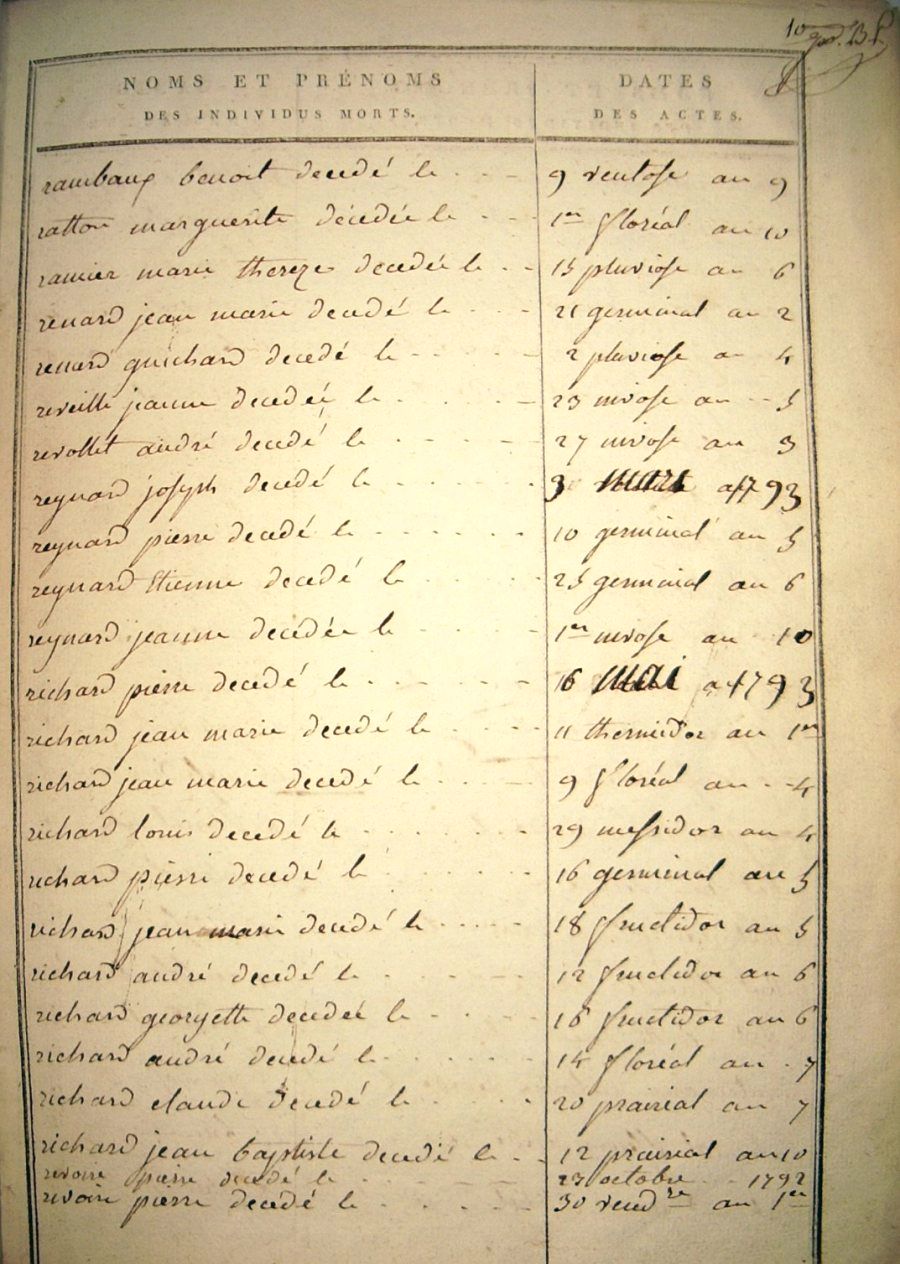 10
NOMS ET PRÉNOMS
DES INDIVIDUS MORTS.
DATES
DES ACTES.
rambaux benoit decedé le - - - 9 ventose an 9
ratton marguerite décédée le - - - 1er floréal an 10
ramier marie thereze decedée le - - 15 pluviose an 6
renard jean marie decedé le - - - 21 germinal an 2
renard guichard decedé le - - - - - 2 pluviose an 4
reveille jeanne decedée le - - - - - 23 nivose an - - 5
revollet andré decedé le - - - - - 27 nivose an 3
reynard joseph decedé le - - - - - 3 mars 1793
reynard pierre decedé le - - - - - - 10 germinal an 5
reynard Etienne decedé le - - - - 25 germinal an 6
reynard jeanne decedée le - - - - 1er nivose an 10
richard pierre decedé le - - - - - - 16 mai 1793
richard jean marie decedé le - - - 11 thermidor an 1er
richard jean marie decedé le - - - 9 floréal an - - 4
richard louis decedé le - - - - - - 29 messidor an 4
richard pierre decedé le - - - - - 16 germinal an 5
richard jean marie decedé le - - - - 18 fructidor an 5
richard andré decedé le - - - - - 12 fructidor an 6
richard georgette decedée le - - - - 18 fructidor an 6
richard andré decedé le - - - - - 14 floréal an - 7
richard claude decedé le - - - - 20 prairial an 7
richard jean baptiste decedé le - - 12 prairial an 10
revoire pierre decedé le - - - - - 23 octobre - - 1792
rivoire pierre decedé le - - - - - 30 vendre an 1er